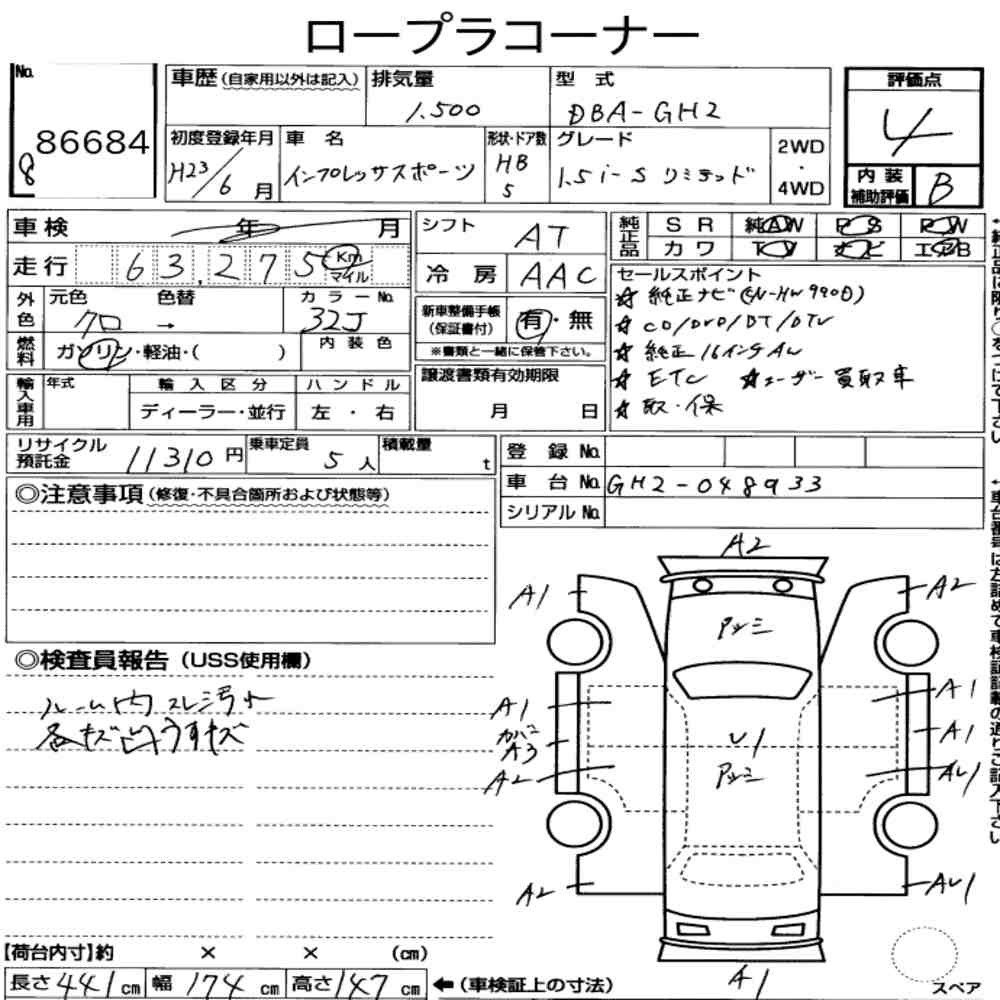 ロープラコーナー
No.
8 86684
車歴(自家用以外は記入) 排気量 型式
1.500 DBA-GH2
初度登録年月 車名 形状・ドア数 グレード
H23/6月 インプレッサスポーツ HB 5 1.5i-S リミテッド 2WD・4WD
評価点
4
内装補助評価 B
車検 年 月
走行 63,275 Km マイル
シフト AT
冷房 AAC
純正品 SR 純AW PS PW
カワ TV ナビ エアB
外色 元色 色替 カラーNo.
クロ → 32J
燃料 ガソリン・軽油・( ) 内装色
新車整備手帳(保証書付) 有・無
※書類と一緒に保管下さい。
セールスポイント
☆ 純正ナビ(CN-HW990D)
☆ CD/DVD/BT/DTV
☆ 純正16インチAW
☆ ETC ☆ユーザー買取車
☆ 取・保
輸入車用 年式 輸入区分 ハンドル
ディーラー・並行 左・右
譲渡書類有効期限
月 日
リサイクル預託金 11310円 乗車定員 5人 積載量 t
登録No.
車台No. GH2-048933
シリアルNo.
◎注意事項(修復・不具合箇所および状態等)
◎検査員報告(USS使用欄)
ルーム内スレ汚れ
各キズ凹うすキズ
A2
A1 A2
アッミ
A1 A1
カバーA3 U1 A1
A2 アッミ AU1
A2 AU1
A1
スペア
【荷台内寸】約 × × (cm)
長さ441cm 幅174cm 高さ147cm ←(車検証上の寸法)
↑純正品は限り○をつけて下さい
↑車台番号は左詰めで車検証記載の通りご記入下さい